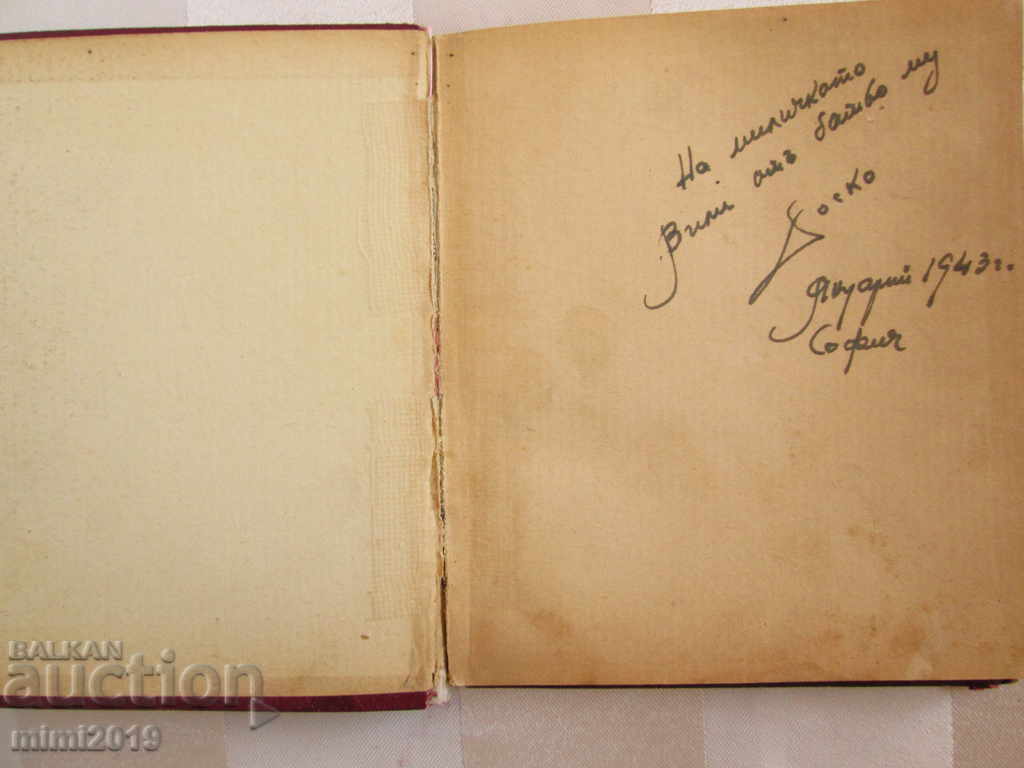 На миличкото
Вили отъ батьо му
Доско
Януарий 1943 г.
София
BALKAN
auction
mimi2019